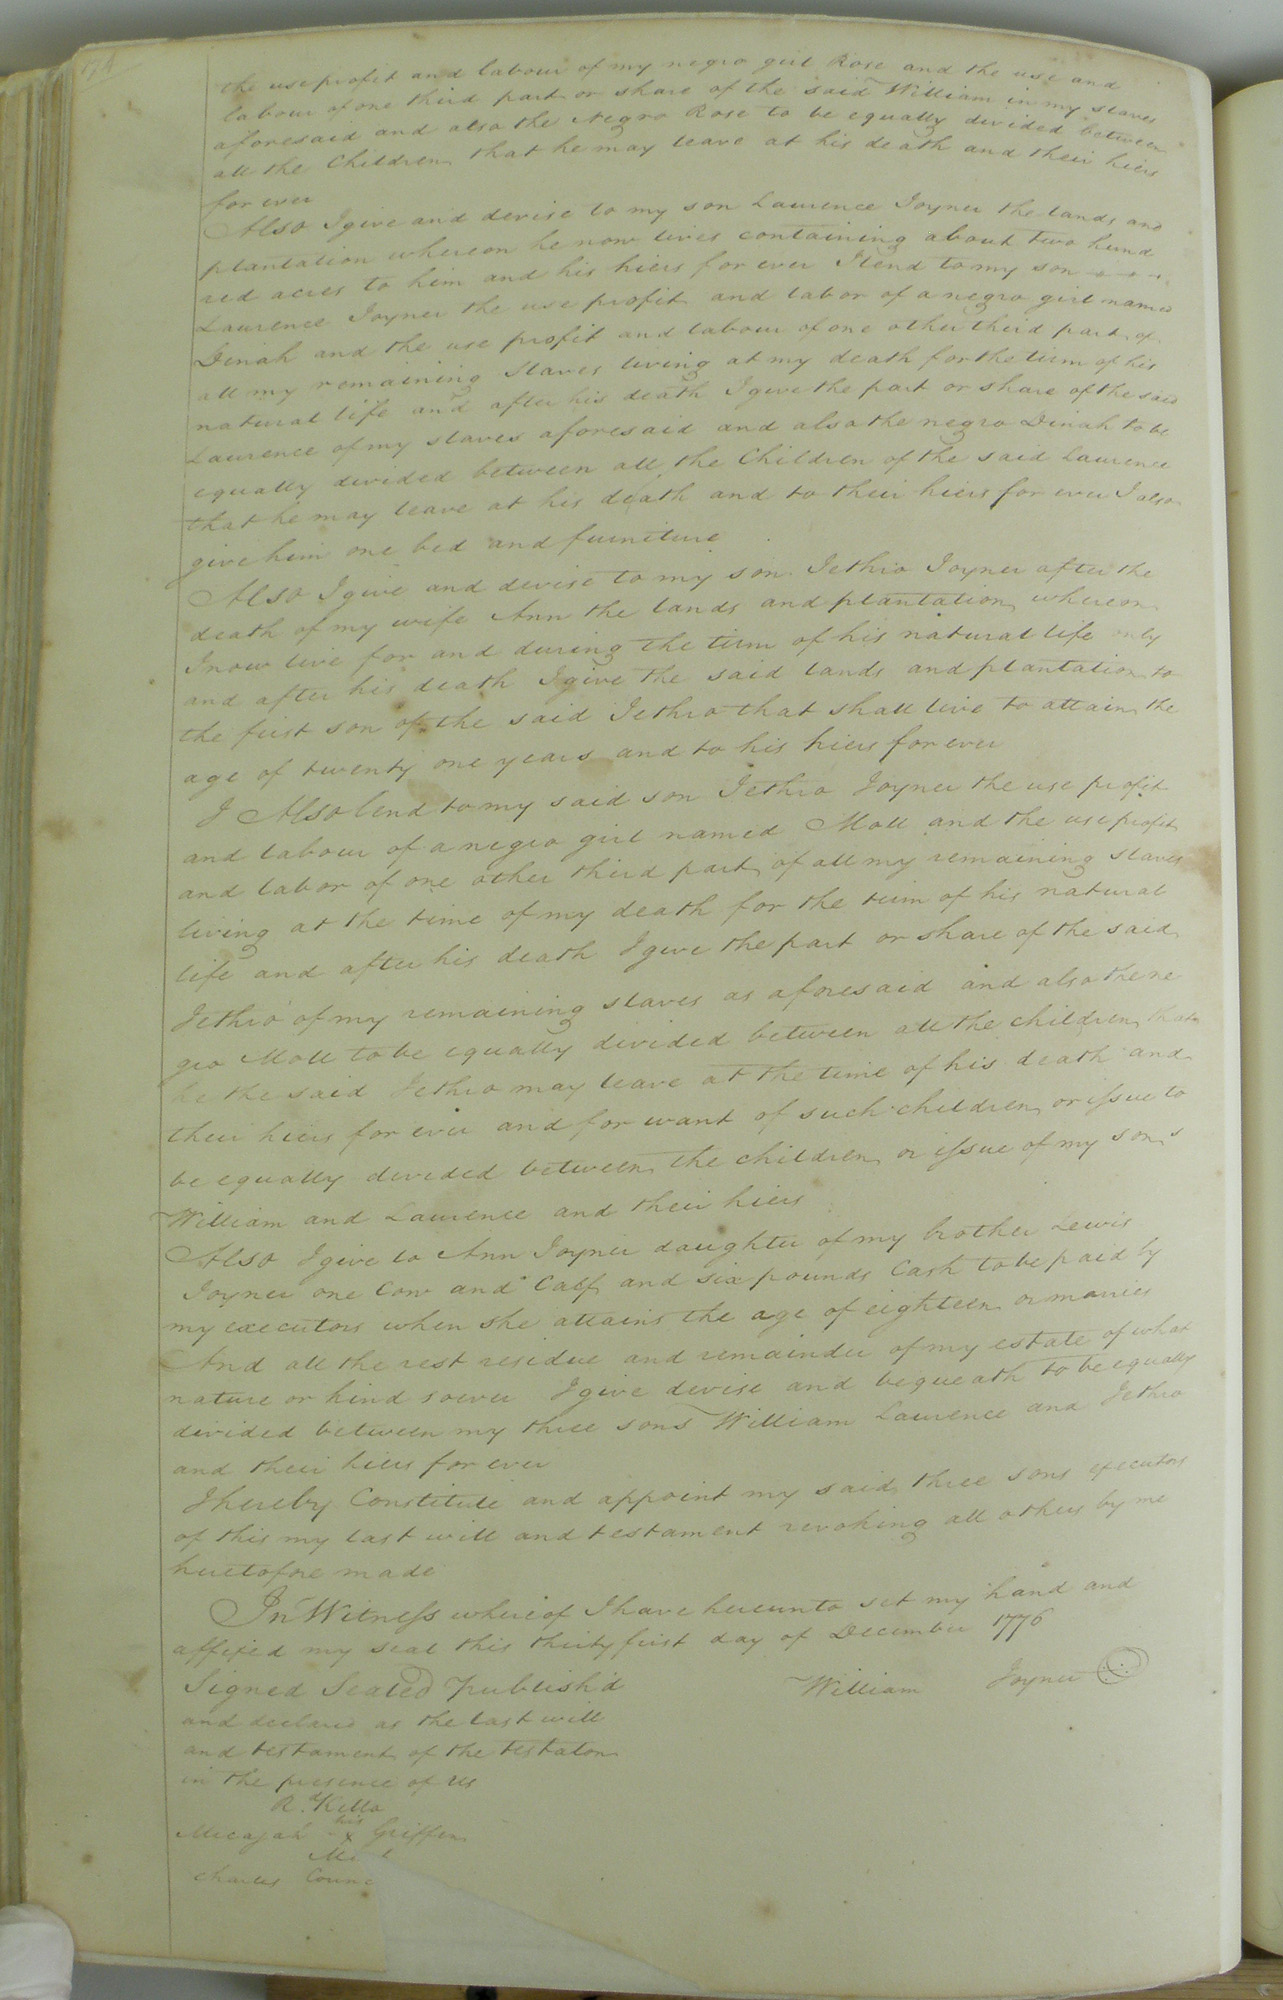 174
the use profit and labour of my negro girl Rose and the use and
labour of one third part or share of the said William in my slaves
aforesaid and also the Negro Rose to be equally divided between
all the Children that he may leave at his death and their hiers
for ever
Also I give and devise to my son Laurence Joyner the lands and
plantation whereon he now lives containing about two hund
red acres to him and his hiers for ever I lend to my son
Laurence Joyner the use profit and labor of a negro girl named
Dinah and the use profit and labour of one other third part of
all my remaining Slaves living at my death for the term of his
natural life and after his death I give the part or share of the said
Laurence of my slaves aforesaid and also the negro Dinah to be
equally divided between all the Children of the said Laurence
that he may leave at his death and to their hiers for ever I also
give him one bed and furniture
Also I give and devise to my son Jethro Joyner after the
death of my wife Ann the lands and plantation whereon
I now live for and during the term of his natural life only
and after his death I give the said lands and plantation to
the first son of the said Jethro that shall live to attain the
age of twenty one years and to his hiers for ever
I Also lend to my said son Jethro Joyner the use profit
and labour of a negro girl named Moll and the use profit
and labor of one other third part of all my remaining slaves
living at the time of my death for the term of his natural
life and after his death I give the part or share of the said
Jethro of my remaining slaves as aforesaid and also the ne
gro Moll to be equally divided between all the children that
he the said Jethro may leave at the time of his death and
their hiers for ever and for want of such children or issue to
be equally divided between the children or issue of my sons
William and Laurence and their hiers
Also I give to Ann Joyner daughter of my brother Lewis
Joyner one Cow and Calf and six pounds Cash to be paid by
my executors when she attains the age of eighteen or marries
And all the rest residue and remainder of my estate of what
nature or kind soever I give devise and bequeath to be equally
divided between my three sons William Laurence and Jethro
and their hiers for ever
I hereby Constitute and appoint my said three sons executors
of this my last will and testament revoking all others by me
heretofore made
In Witness whereof I have hereunto set my hand and
affixed my seal this thirty first day of December 1776
Signed Sealed Publish'd William Joyner
and declared as the last will
and testament of the testator
in the presence of us
R.d Kello
his
Micajah x Griffen
Charles